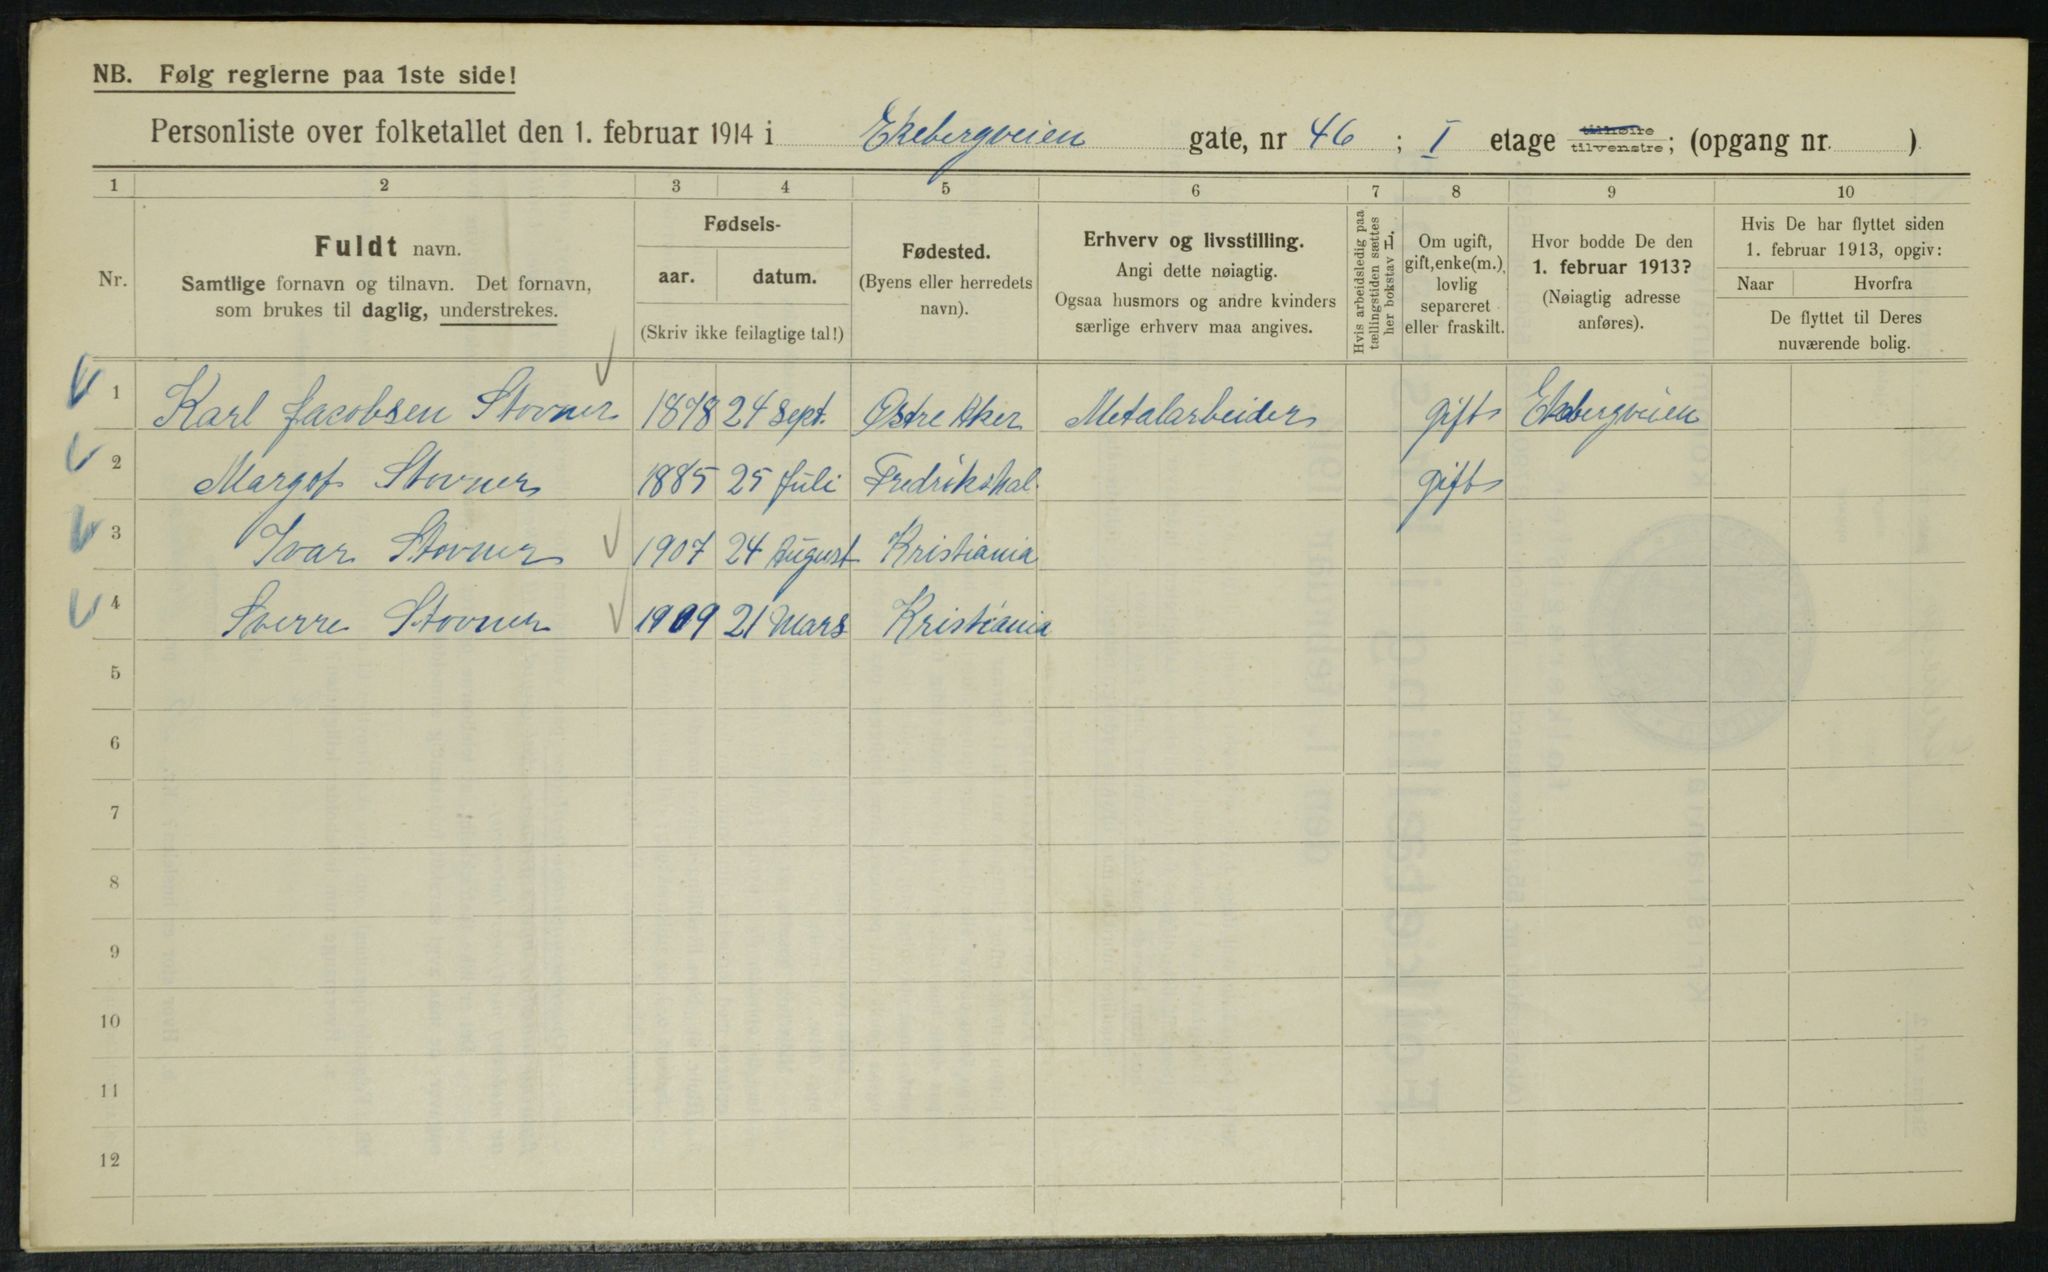 NB. Følg reglerne paa 1ste side!
Personliste over folketallet den 1. februar 1914 i Ekebergveien gate, nr 46 ; I etage tilhøire tilvenstre; (opgang nr. )
1 2 3 4 5 6 7 8 9 10
Nr.
Fuldt navn.
Samtlige fornavn og tilnavn. Det fornavn,
som brukes til daglig, understrekes.
Fødsels-
aar. datum.
(Skriv ikke feilagtige tal!)
Fødested.
(Byens eller herredets
navn).
Erhverv og livsstilling.
Angi dette nøiagtig.
Ogsaa husmors og andre kvinders
særlige erhverv maa angives.
Hvis arbeidsledig paa
tællingstiden sættes
her bokstav L.
Om ugift,
gift, enke(m.),
lovlig
separeret
eller fraskilt.
Hvor bodde De den
1. februar 1913?
(Nøiagtig adresse
anføres).
Hvis De har flyttet siden
1. februar 1913, opgiv:
Naar Hvorfra
De flyttet til Deres
nuværende bolig.
1 Karl Jacobsen Stovner 1878 24 Sept. Østre Aker Metalarbeider gift Ekebergveien
2 Margot Stovner 1885 25 Juli Fredrikshal. gift
3 Ivar Stovner 1907 24 August Kristiania
4 Sverre Stovner 1909 21 Mars Kristiania
5
6
7
8
9
10
11
12